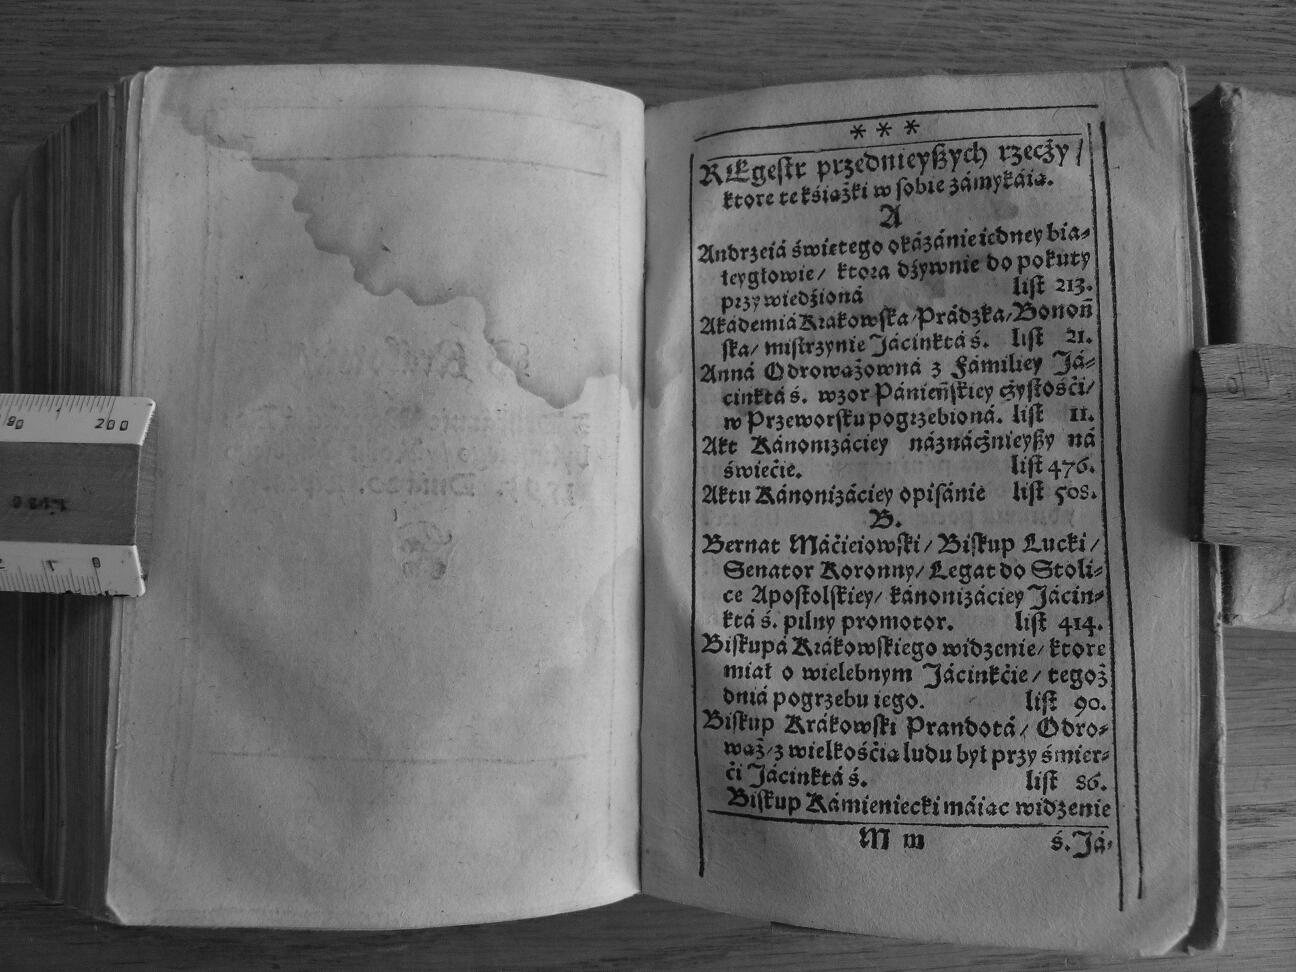 * * *
REgestr przednieyßych rzeczy /
ktore te kśiążki w sobie zámykáią.
A
Andrzeiá świętego okázánie iedney bia-
łeygłowie / ktora dźywnie do pokuty
przywiedźioná list 213.
Akádemia Krakowska / Prádzka / Bonoń
ska / mistrzynie Jácinktá ś. list 21.
Anná Odrowążowná z Fámiliey Já-
cinktá ś. wzor Pánieńskiey czystośći /
w Przeworsku pogrzebioná. list 11.
Akt Kánonizáciey náznácznieyßy ná
świećie. list 476.
Aktu Kánonizáciey opisánie list 508.
B.
Bernat Máćieiowski / Biskup Łucki /
Senator Koronny / Legat do Stoli-
ce Apostolskiey / kánonizáciey Jácin-
ktá ś. pilny promotor. list 414.
Biskupá Krákowskiego widzenie / ktore
miał o wielebnym Jácinkćie / tegoż
dniá pogrzebu iego. list 90.
Biskup Krákowski Prandotá / Odro-
wąż / z wielkośćią ludu był przy śmier-
ći Jácinktá ś. list 86.
Biskup Kámieniecki máiąc widzenie
M m ś. Já-
200